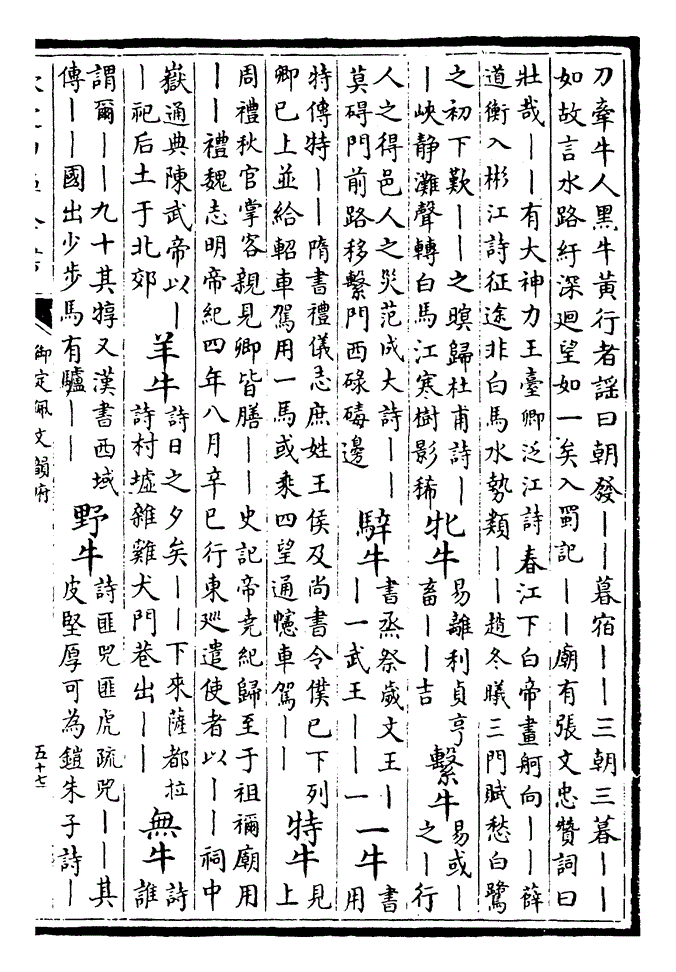 刀牽牛人黑牛黃行者謡曰朝發｜｜暮宿｜｜三朝三暮｜｜
如故言水路紆深廻望如一矣入蜀記｜｜廟有張文忠贊詞曰
壯哉｜｜有大神力王臺卿泛江詩春江下白帝畫舸向｜｜薛
道衡入彬江詩征途非白馬水勢類｜｜趙冬曦三門賦愁白鷺
之初下歎｜｜之暝歸杜甫詩｜
｜峽静灘聲轉白馬江寒樹影稀
牝牛
易離利貞亨
畜｜｜吉
繫牛
易或｜
之｜行
人之得邑人之災范成大詩｜｜
莫碍門前路移繫門西碌碡邊
騂牛
書烝祭歲文王｜
｜一武王｜｜一
一牛
書
用
特傳特｜｜隋書禮儀志庶姓王侯及尚書令僕已下列
卿已上並給軺車駕用一馬或乘四望通幰車駕｜｜
特牛
見
上
周禮秋官掌客親見卿皆膳｜｜史記帝堯紀歸至于祖禰廟用
｜｜禮魏志明帝紀四年八月辛巳行東廵遣使者以｜｜祠中
嶽通典陳武帝以｜
｜祀后土于北郊
羊牛
詩日之夕矣｜｜下來薩都拉
詩村墟雜雞犬門巷出｜｜
無牛
詩
誰
謂爾｜｜九十其犉又漢書西域
傳｜｜國出少步馬有驢｜｜
野牛
詩匪兕匪虎疏兕｜｜其
皮堅厚可為鎧朱子詩｜
御定佩文韻府
五十七